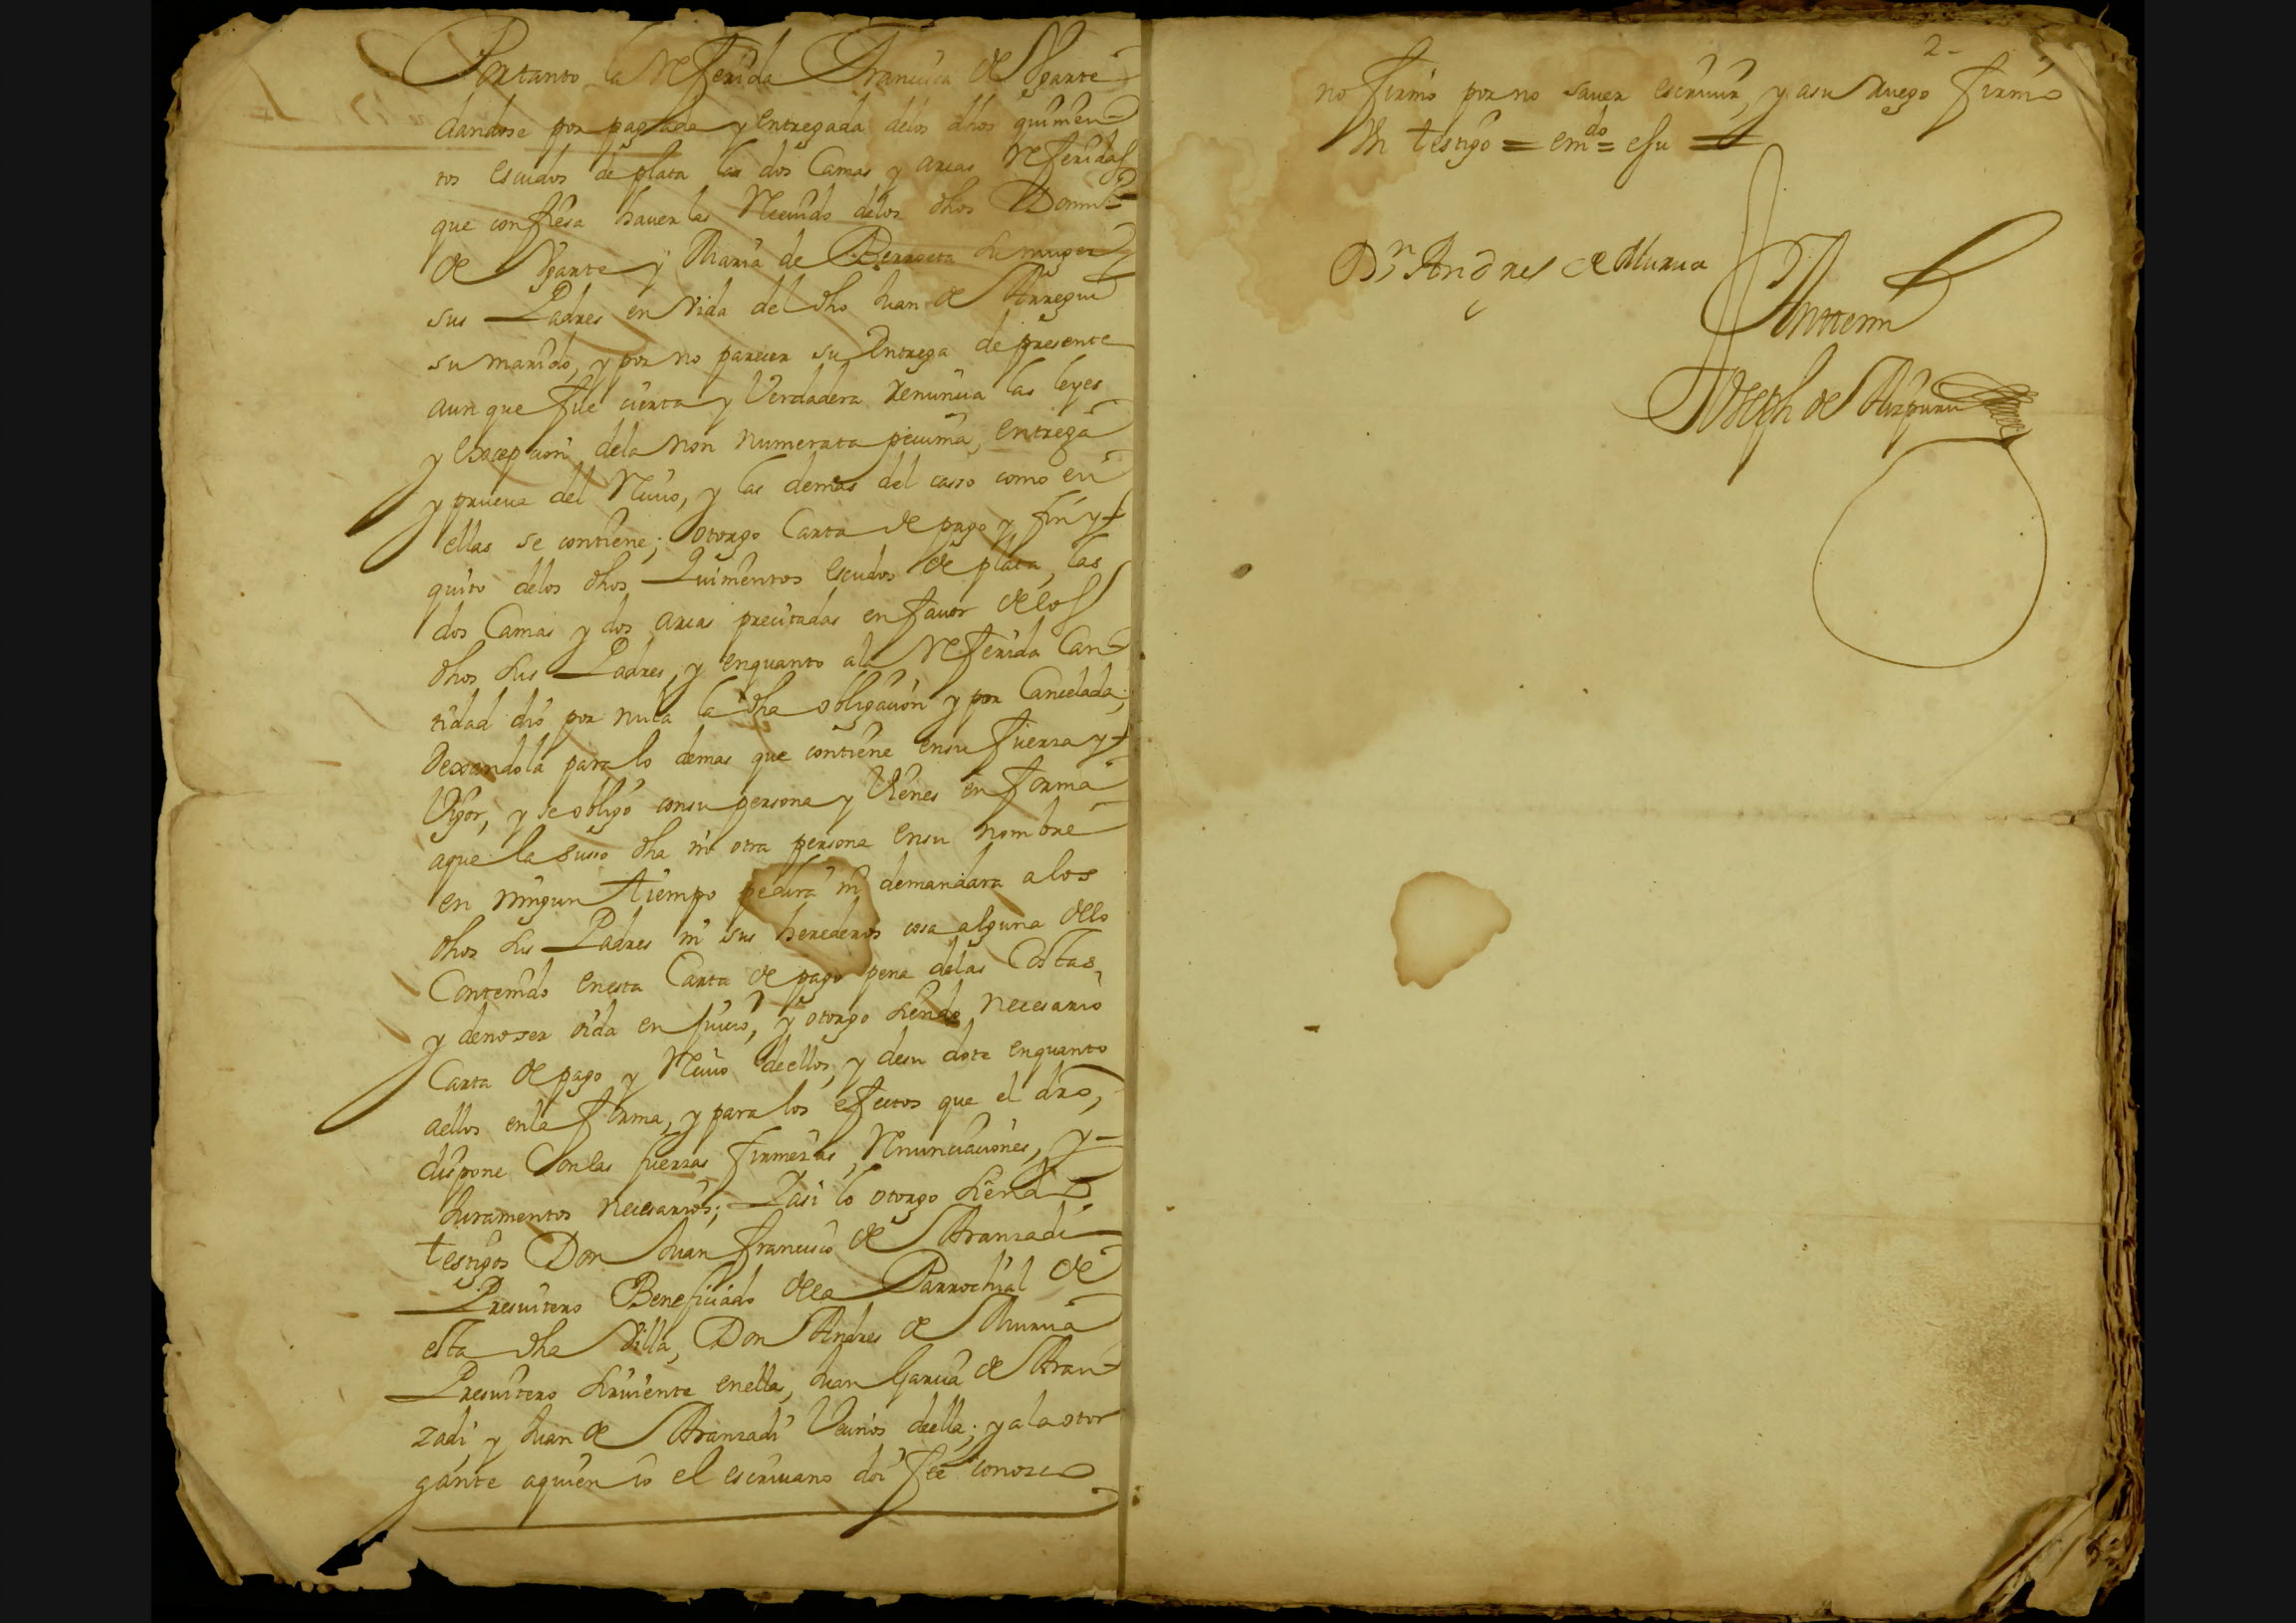 Portanto la referida Francisca de Ugarte
dandose por pagada y entregada delos dhos quinien-
tos escudos de plata las dos Camas y arcas referidas
que confiesa hauer las reciuido delos dhos Domingo
de Ugarte y Maria de Berroeta su muger
sus Padres en vida del dho Juan de Arregui
su marido, y por no parecer su entrega de presente
aun que fue cierta y Verdadera renuncia las leyes
y excepcion dela non numerata pecunia, entrega
y prueua del reciuo, y las demas del casso como en
ellas se contiene; otorgo Carta de pago y fin y
quito delos dhos Quinientos escudos de plata, las
dos Camas y dos arcas precitadas en fauor delos
dhos sus Padres, y enquanto ala referida Can-
tidad dio por nula la dha obligacion y por Cancelada;
Dexandola para lo demas que contiene ensu fuerza y
Vigor, y se obligo consu persona y Vienes en forma
aque la susso dha ni otra persona ensu nombre
en ningun tiempo pedira ni demandara alos
dhos sus Padres ni sus herederos cosa alguna delo
Contenido enesta Carta de pago pena delas Costas,
y denoser oida en juicio, y otorgo siendo necesario
Carta de pago y reciuo deellos, y desu dote enquanto
aellos enla forma, y para los efectos que el dro,
dispone Con las fuerzas firmezas, renunciaciones, y
Juramentos necesarios; Yasi lo otorgo siendo
testigos Don Juan francisco de Aranzadi
Presuitero Beneficiado dela Parrochial de
esta dha Villa, Don Andres de Murua
Presuitero siruiente enella, Juan Garcia de Aran-
zadi y Juan de Aranzadi Vecinos deella; y ala otor
gante aquien io el escriuano doi fee conozco
2-
no firmo por no sauer escriuir, y asu ruego firmo
Un testigo = em.do = esu =
Dn Andres de Murua
Antemi
Joseph de Aizpuru